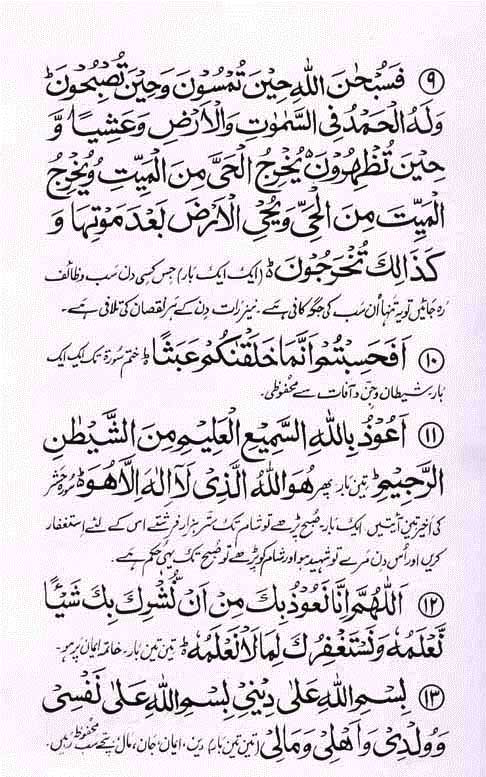 ۹ فَسُبْحٰنَ اللهِ حِيْنَ تُمْسُوْنَ وَحِيْنَ تُصْبِحُوْنَ ط
وَلَهُ الْحَمْدُ فِى السَّمٰوٰتِ وَالْاَرْضِ وَعَشِيًّا وَّ
حِيْنَ تُظْهِرُوْنَ ه يُخْرِجُ الْحَىَّ مِنَ الْمَيِّتِ وَيُخْرِجُ
الْمَيِّتَ مِنَ الْحَىِّ وَيُحْىِ الْاَرْضَ بَعْدَ مَوْتِهَا وَ
كَذَالِكَ تُخْرَجُوْنَ ط (ایک ایک بار) جس کسی دن سب وظائف
رہ جائیں تو یہ تنہا اُن سب کی جگہ کافی ہے۔ نیز رات دن کے ہر نقصان کی تلافی ہے۔
۱۰ اَفَحَسِبْتُمْ اَنَّمَا خَلَقْنٰكُمْ عَبَثًا ط ختم سورۃ تک ایک ایک
بار شیطان و جن و آفات سے محفوظی۔
۱۱ اَعُوْذُ بِاللهِ السَّمِيْعِ الْعَلِيْمِ مِنَ الشَّيْطٰنِ
الرَّجِيْمِ ط تین بار پھر هُوَ اللهُ الَّذِىْ لَآ اِلٰهَ اِلَّا هُوَ ط سورۃ حشر
کی اخیر تین آیتیں ایک بار۔ صبح پڑھے تو شام تک ستر ہزار فرشتے اس کے لئے استغفار
کریں اور اُس دن مرے تو شہید ہو اور شام کو پڑھے تو صبح تک یہی حکم ہے۔
۱۲ اَللّٰهُمَّ اِنَّا نَعُوْذُ بِكَ مِنْ اَنْ نُّشْرِكَ بِكَ شَيْئًا
نَّعْلَمُهٗ وَنَسْتَغْفِرُكَ لِمَا لَا نَعْلَمُهٗ ط تین تین بار۔ خاتمہ ایمان پر ہو۔
۱۳ بِسْمِ اللهِ عَلٰى دِيْنِىْ بِسْمِ اللهِ عَلٰى نَفْسِىْ
وَوُلْدِىْ وَاَهْلِىْ وَمَالِىْ (تین تین بار) دین، ایمان، جان، مال، بچے سب محفوظ رہیں۔